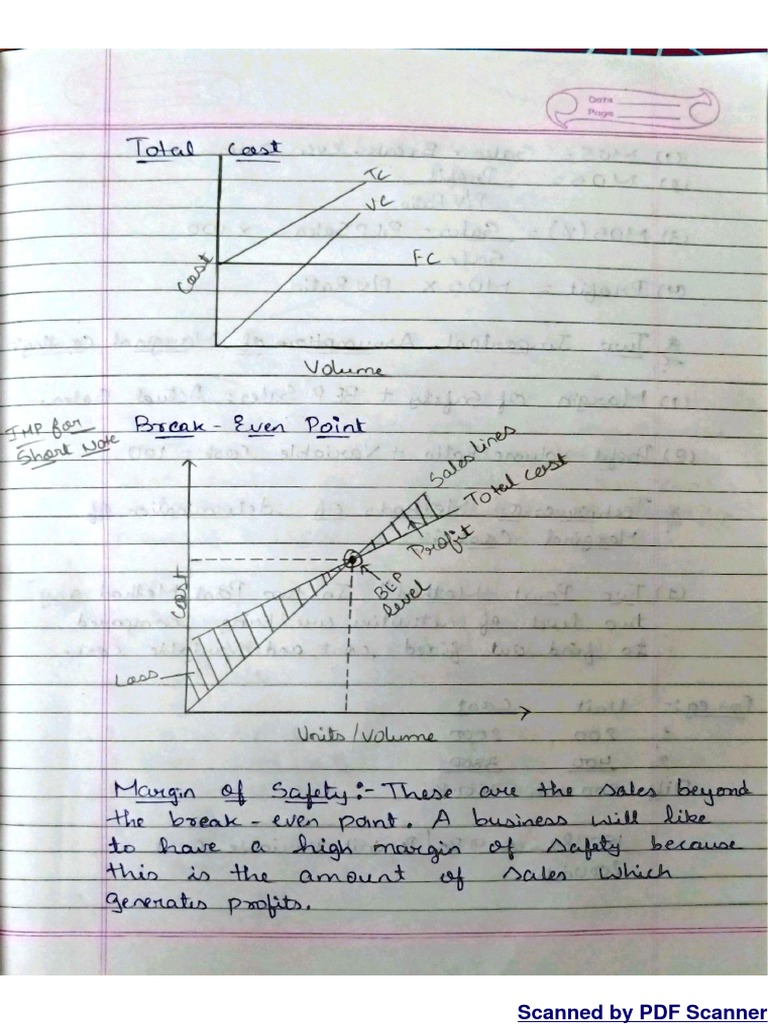 Date
Page
Total Cost
TC
VC
FC
Cost
Volume
IMP for
Short Note
Break-Even Point
Sales lines
Total cost
Profit
BEP
level
Cost
Loss
Units/Volume
Margin of Safety:- These are the sales beyond
the break-even point. A business will like
to have a high margin of safety because
this is the amount of sales which
generates profits.
Scanned by PDF Scanner